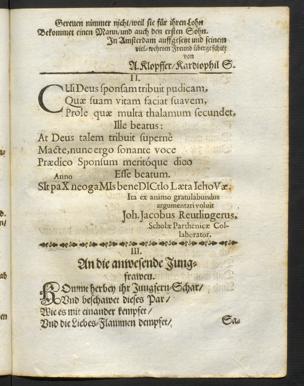 Gereuen nimmer nicht/weil sie für ihren Lohn
Bekommet einen Mann/und auch den ersten Sohn.
In Amsterdam auffgesetzt und seinem
viel-wehrten Freund übergeschickt
von
A. Klopffer/Kardiophil S.
II.
CUi Deus sponsam tribuit pudicam,
Quæ suam vitam faciat suavem,
Prole quæ multa thalamum fecundet,
Ille beatus:
At Deus talem tribuit supernè
Macte, nunc ergo sonante voce
Prædico Sponsum meritóque dico
Esse beatum.
Anno
SIt paX neogaMIs beneDICtIo Læta IehoVæ.
Ita ex animo gratulabundus
argumentari voluit
Joh. Jacobus Reutlingerus.
Scholæ Parthenicæ Col-
laborator.
III.
An die anwesende Jung-
frawen.
KOmme herbey ihr Jungfern-Schar/
Vnd beschawet dieses Par/
Wie es mit einander kempfet/
Vnd die Liebes-Flammen dempfet/
Sa-